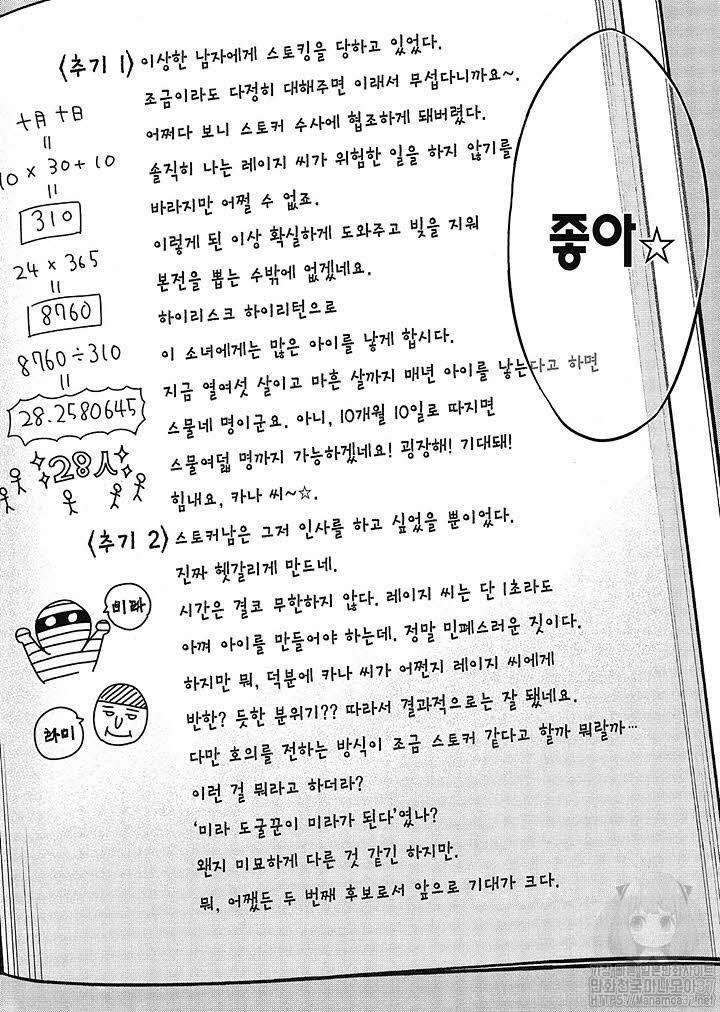 〈추기 1〉 이상한 남자에게 스토킹을 당하고 있었다.
조금이라도 다정히 대해주면 이래서 무섭다니까요~.
어쩌다 보니 스토커 수사에 협조하게 돼버렸다.
솔직히 나는 레이지 씨가 위험한 일을 하지 않기를
바라지만 어쩔 수 없죠.
이렇게 된 이상 확실하게 도와주고 빚을 지워
본전을 뽑는 수밖에 없겠네요.
하이리스크 하이리턴으로
이 소녀에게는 많은 아이를 낳게 합시다.
지금 열여섯 살이고 마흔 살까지 매년 아이를 낳는다고 하면
스물네 명이군요. 아니, 10개월 10일로 따지면
스물여덟 명까지 가능하겠네요! 굉장해! 기대돼!
힘내요, 카나 씨~☆.
十月十日
=
10 × 30 + 10
=
310
24 × 365
=
8760
8760 ÷ 310
=
28.2580645
28人
좋아☆
〈추기 2〉 스토커남은 그저 인사를 하고 싶었을 뿐이었다.
진짜 헷갈리게 만드네.
시간은 결코 무한하지 않다. 레이지 씨는 단 1초라도
아껴 아이를 만들어야 하는데. 정말 민폐스러운 짓이다.
하지만 뭐, 덕분에 카나 씨가 어쩐지 레이지 씨에게
반한? 듯한 분위기?? 따라서 결과적으로는 잘 됐네요.
다만 호의를 전하는 방식이 조금 스토커 같다고 할까 뭐랄까…
이런 걸 뭐라고 하더라?
‘미라 도굴꾼이 미라가 된다’였나?
왠지 미묘하게 다른 것 같긴 하지만.
뭐, 어쨌든 두 번째 후보로서 앞으로 기대가 크다.
미라
라미
가장 빠른 일본만화사이트
만화천국마나모아37
HTTPS://Manamoa37.net/